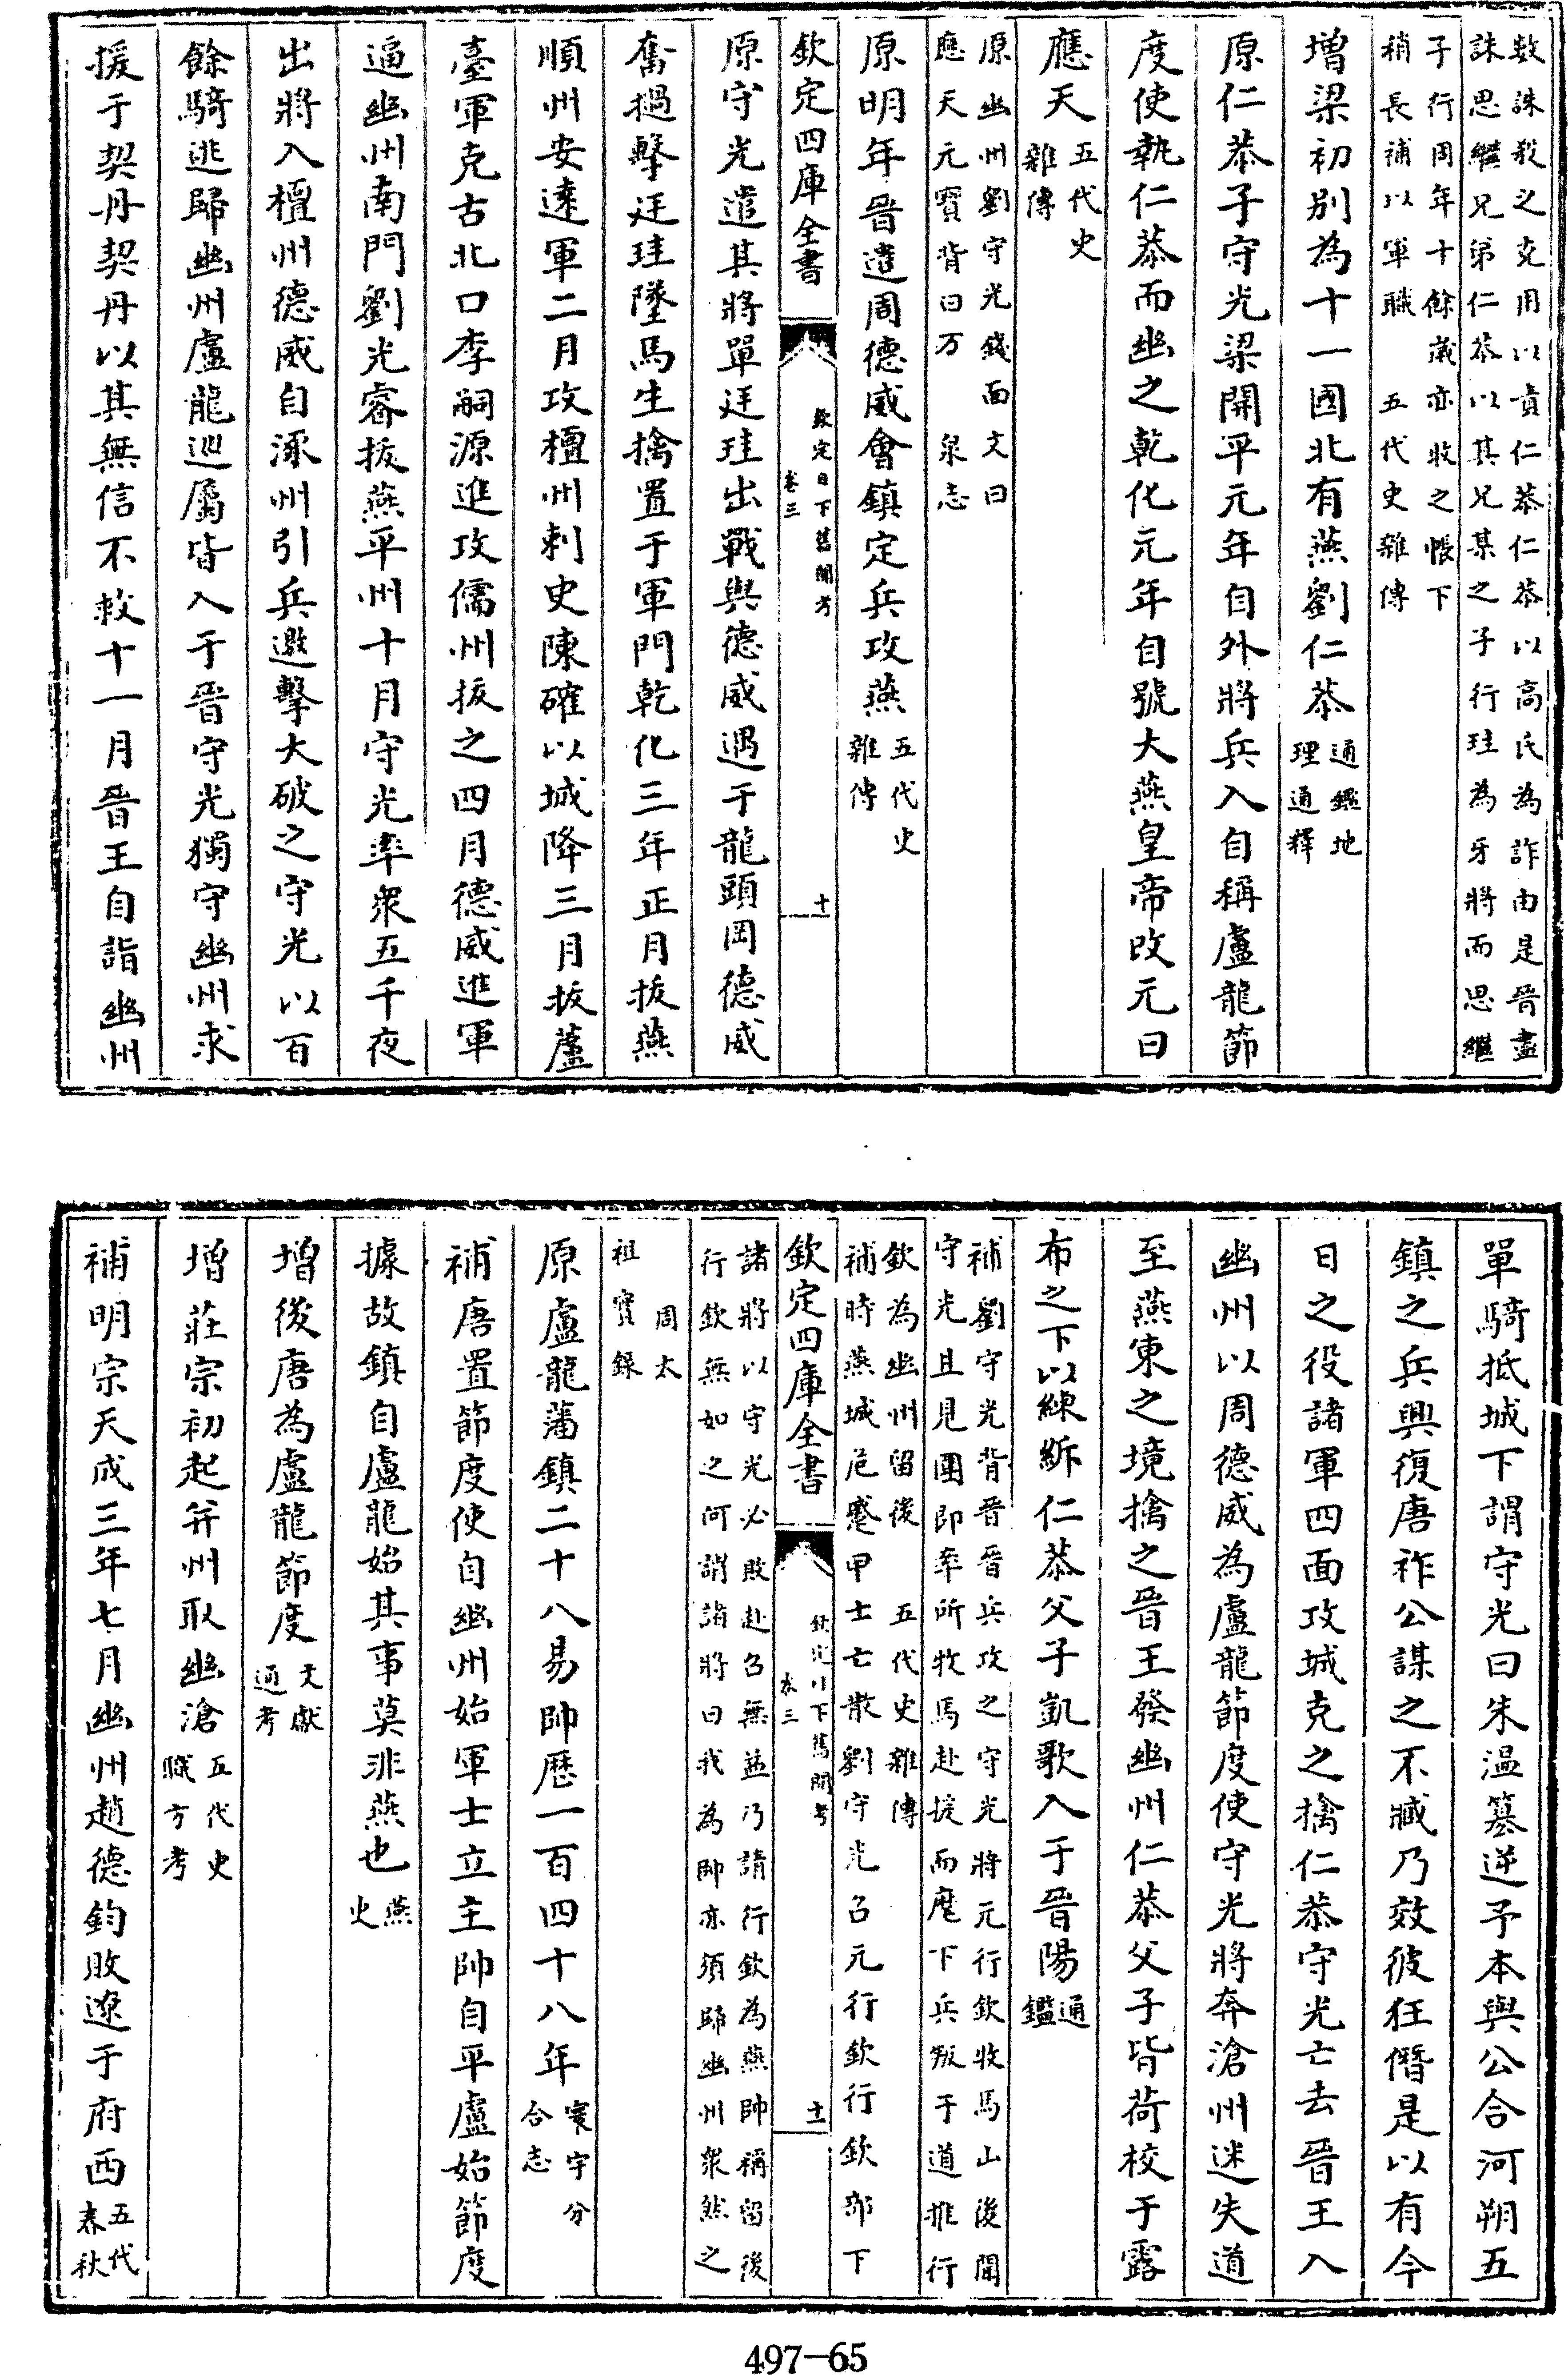 数誅殺之克用以責仁恭仁恭以高氏為詐由是晉盡
誅思繼兄弟仁恭以其兄某之子行珪為牙將而思繼
子行周年十餘歲亦收之帳下
稍長補以軍職 五代史雜傳
增梁初別為十一國北有燕劉仁恭通鑑地理通釋
原仁恭子守光梁開平元年自外將兵入自稱盧龍節
度使執仁恭而幽之乾化元年自號大燕皇帝改元曰
應天五代史雜傳
原幽州劉守光錢面文曰
應天元寶背曰万 泉志
原明年晉遣周德威會鎮定兵攻燕五代史雜傳
欽定四庫全書 欽定日下舊聞考 卷三 十
原守光遣其將單廷珪出戰與德威遇于龍頭岡德威
奮撾擊廷珪墜馬生擒置于軍門乾化三年正月拔燕
順州安遠軍二月攻檀州刺史陳確以城降三月拔蘆
臺軍克古北口李嗣源進攻儒州拔之四月德威進軍
逼幽州南門劉光睿拔燕平州十月守光率衆五千夜
出將入檀州德威自涿州引兵邀擊大破之守光以百
餘騎逃歸幽州盧龍巡屬皆入于晉守光獨守幽州求
援于契丹契丹以其無信不救十一月晉王自詣幽州
單騎抵城下謂守光曰朱温簒逆予本與公合河朔五
鎮之兵興復唐祚公謀之不臧乃效彼狂僭是以有今
日之役諸軍四面攻城克之擒仁恭守光亡去晉王入
幽州以周德威為盧龍節度使守光將奔滄州迷失道
至燕東之境擒之晉王發幽州仁恭父子皆荷校于露
布之下以練縏仁恭父子凱歌入于晉陽通鑑
補劉守光背晉晉兵攻之守光將元行欽牧馬山後聞
守光且見圍即率所牧馬赴援而麾下兵叛于道推行
欽為幽州留後 五代史雜傳
補時燕城危蹙甲士亡散劉守光召元行欽行欽部下
欽定四庫全書 欽定日下舊聞考 卷三 十一
諸將以守光必敗赴召無益乃請行欽為燕帥稱留後
行欽無如之何謂諸將曰我為帥亦須歸幽州衆然之
周太
祖實錄
原盧龍藩鎮二十八易帥歷一百四十八年寰宇分合志
補唐置節度使自幽州始軍士立主帥自平盧始節度
據故鎮自盧龍始其事莫非燕也燕史
增後唐為盧龍節度文獻通考
增莊宗初起并州取幽滄五代史職方考
補明宗天成三年七月幽州趙德鈞敗遼于府西五代春秋
497—65